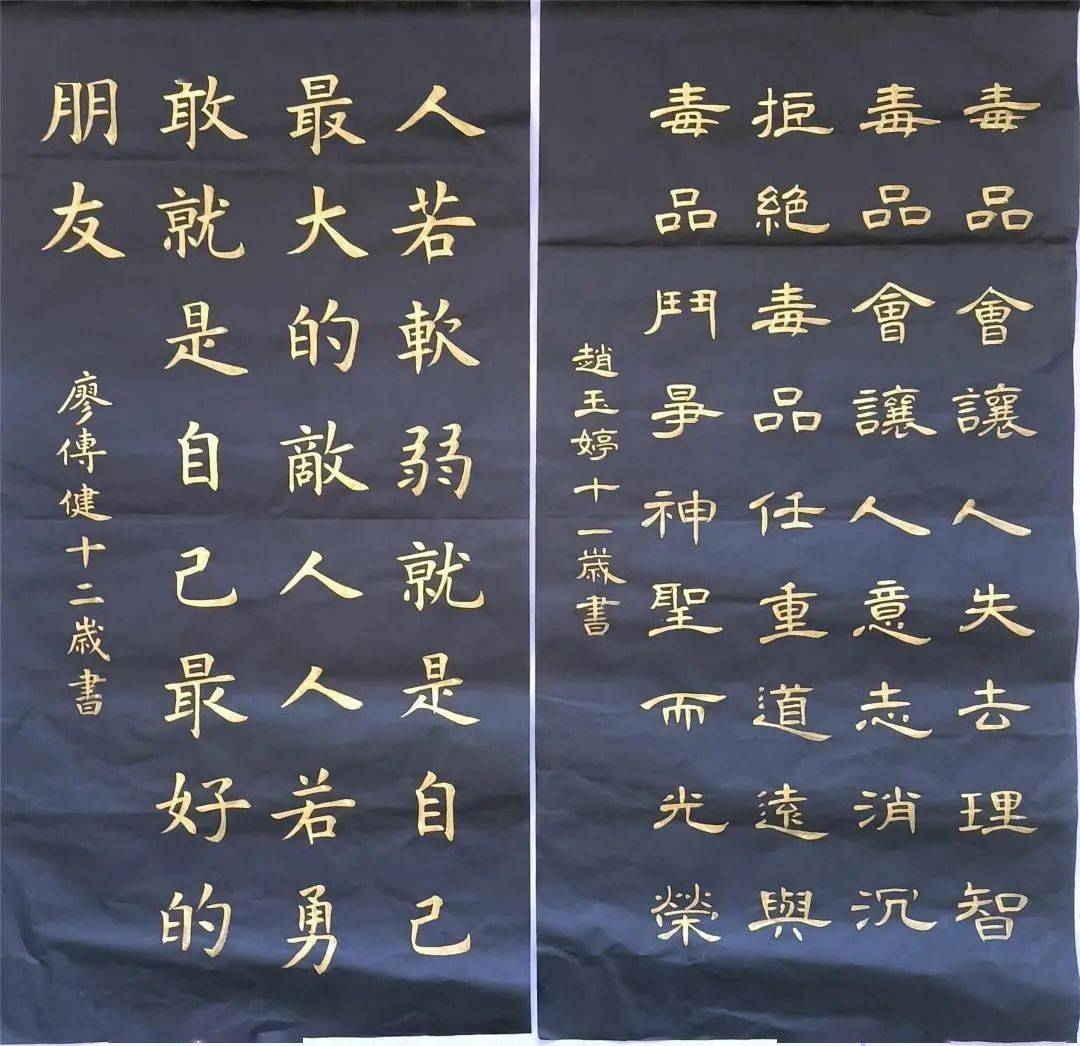 毒品會讓人失去理智
毒品會讓人意志消沉
拒絕毒品任重道遠與
毒品鬥爭神聖而光榮
趙玉婷十一歲書
人若軟弱就是自己
最大的敵人人若勇
敢就是自己最好的
朋友
廖傳健十二歲書